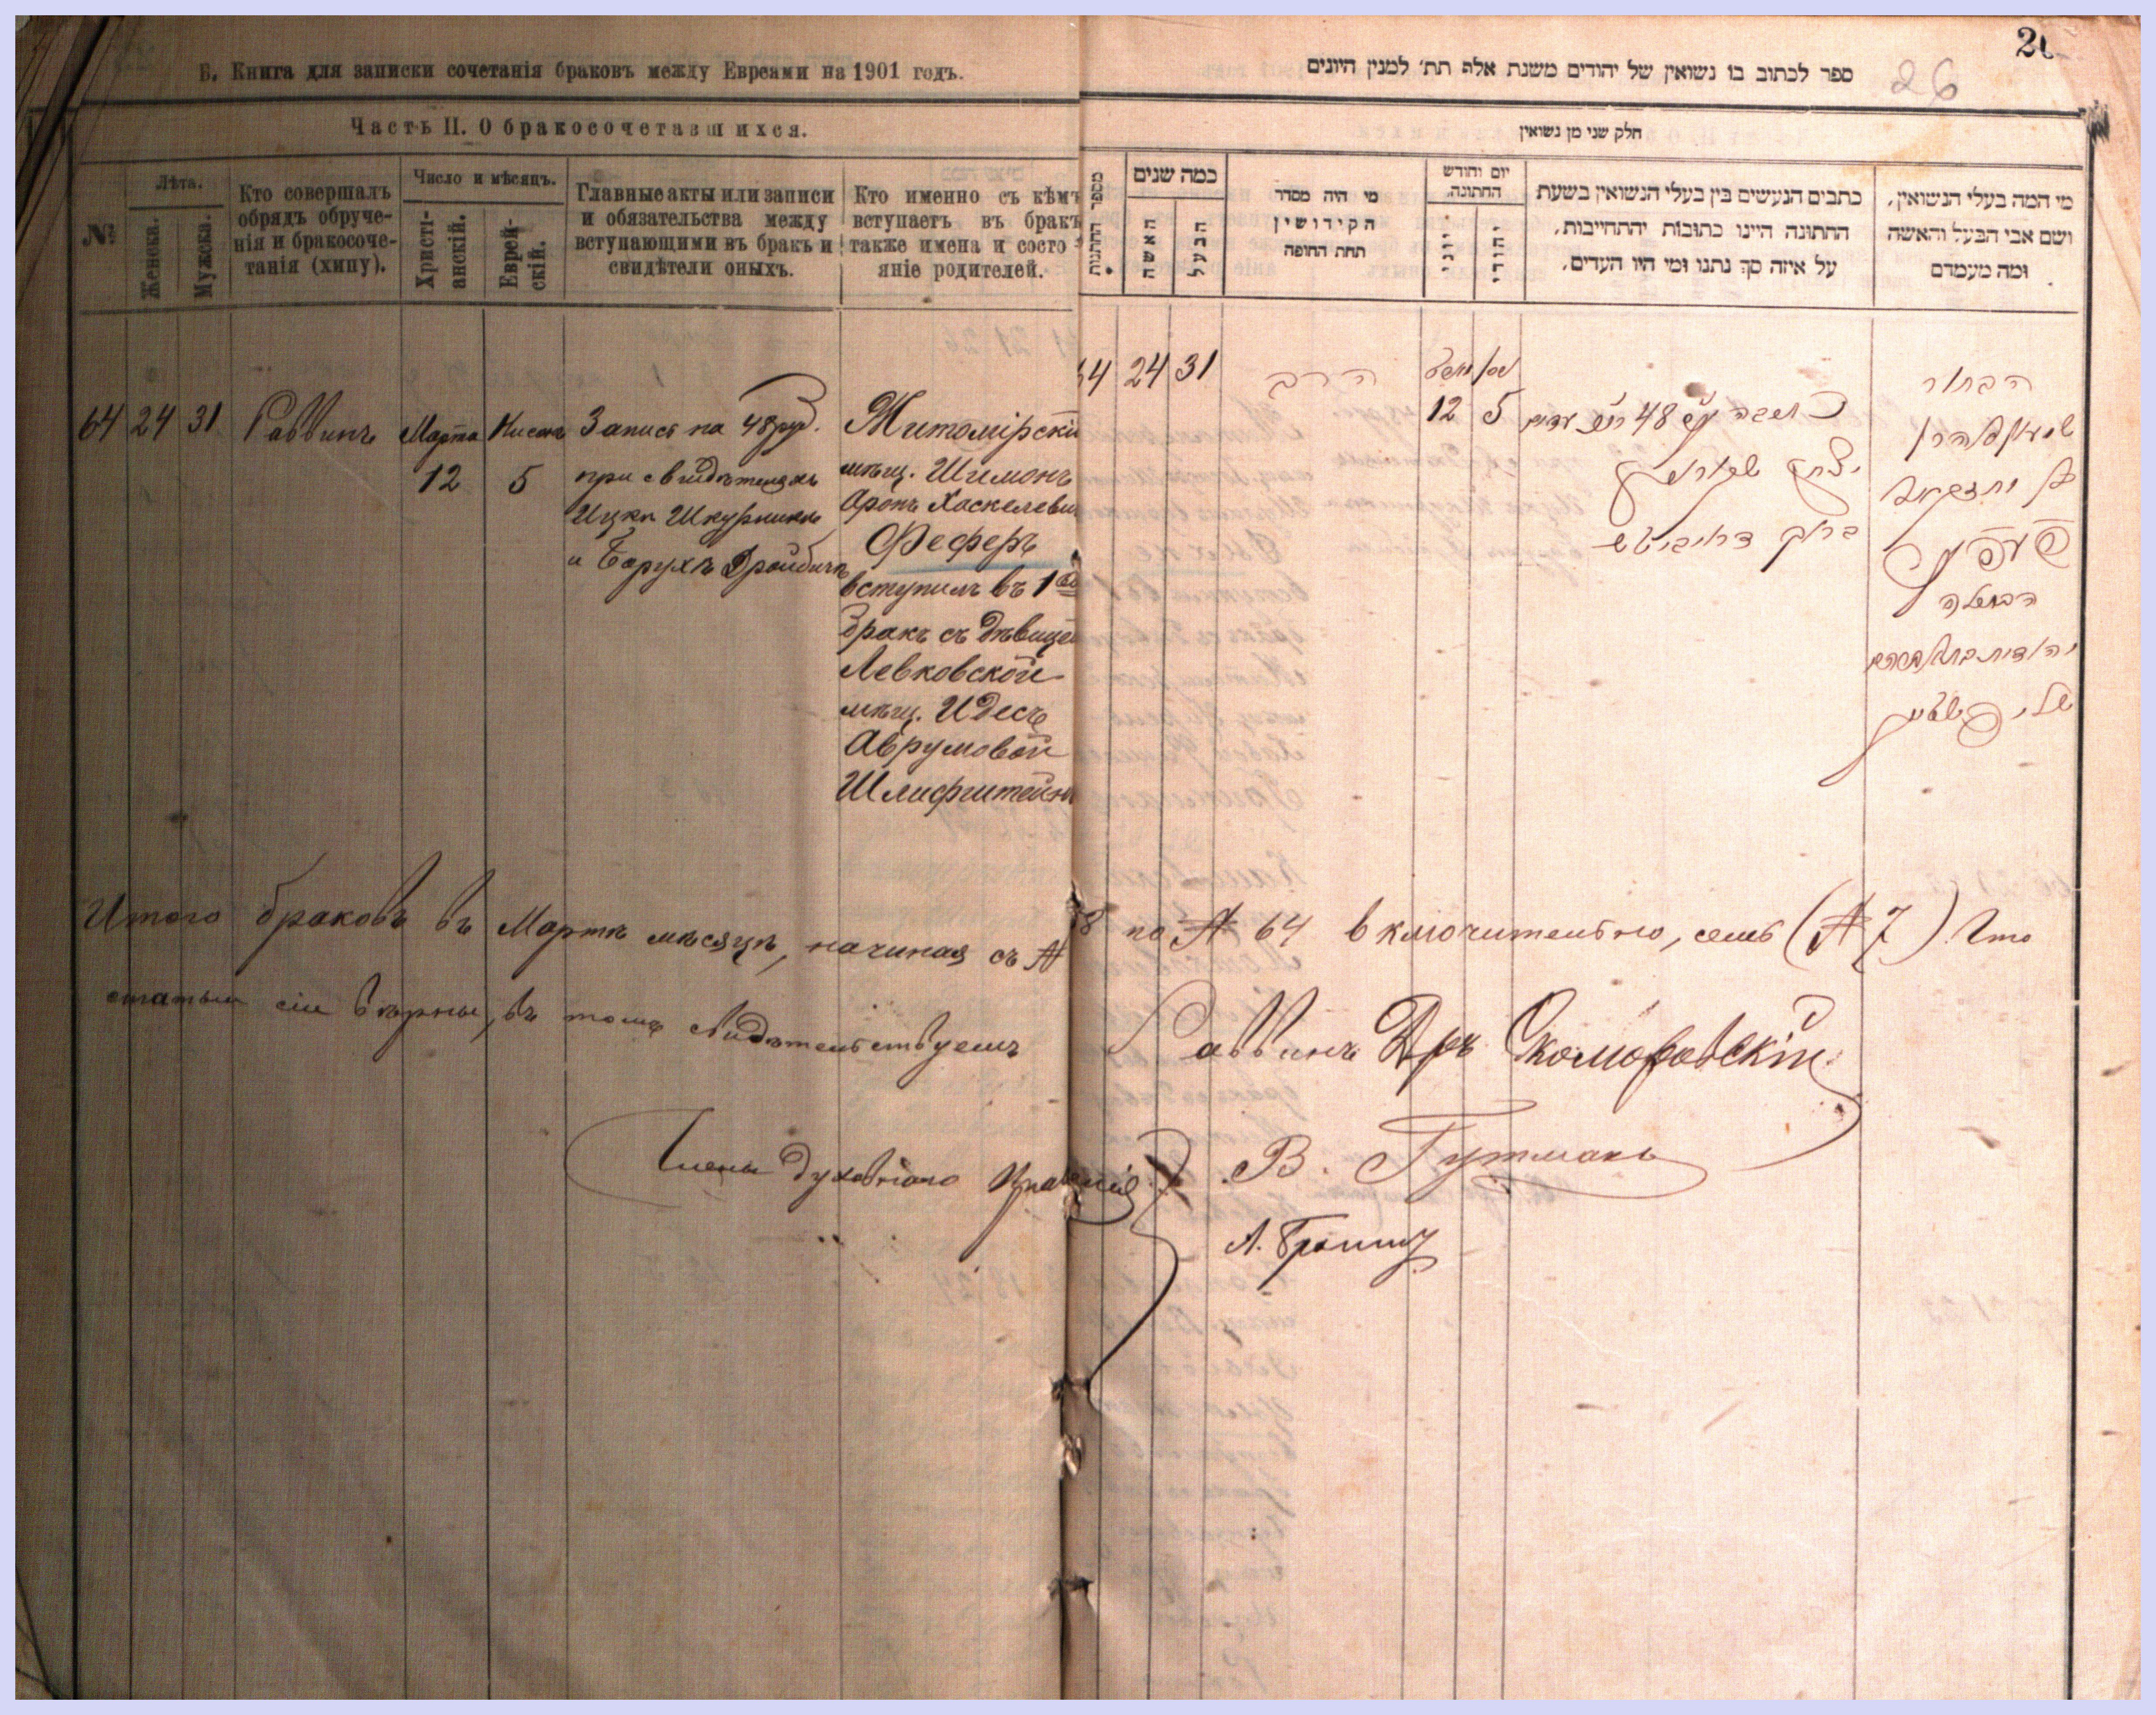 Б. Книга для записки сочетанія браковъ между Евреами на 1901 годъ.
Часть II. О бракосочетавшихся.
№
Лѣта.
Женска.
Мужска.
Кто совершалъ
обрядъ обруче-
нія и бракосоче-
танія (хипу).
Число и мѣсяцъ.
Христі-
анскій.
Еврей-
скій.
Главные акты или записи
и обязательства между
вступающими въ бракъ и
свидѣтели оныхъ.
Кто именно съ кѣмъ
вступаетъ въ бракъ
также имена и состо-
яніе родителей.
64
24
31
Раввинъ
Марта
12
Нисана
5
Запись на 48 руб.
при свидѣтеляхъ
Ицкъ Шкурникъ
и Барухъ Дройбичъ
Житомірскій
мѣщ. Шимонъ
Аронъ Хаскелеви
Феферъ
вступилъ въ 1ый
бракъ съ дѣвицей
Левковской
мѣщ. Идесъ
Аврумовой
Шлифштейнъ
26
26
ספר לכתוב בו נשואין של יהודים משנת אלף תת׳ למנין היונים
חלק שני מן נשואין
מספר החתונות
כמה שנים
האשה
הבעל
מי היה מסדר
הקידושין
תחת החופה
יום וחודש
החתונה.
יוני
יהודי
כתבים הנעשים בין בעלי הנשואין בשעת
החתונה היינו כתובות והתחייבות,
על איזה סך נתנו ומי היו העדים.
מי המה בעלי הנשואין,
ושם אבי הבעל והאשה
ומה מעמדם
64
24
31
הרב
מארט
12
ניסן
5
כתובה ע״ס 48 רו״כ עדים
יצחק שקורניק
ברוך דרויביטש
הבחור
שמעון אהרן
בן יחזקאל
פעפער
הבתולה
יהודית בת אברהם
שליפשטיין
Итого браковъ въ Мартѣ мѣсяцѣ, начиная съ № 58 по № 64 включительно, семь (№ 7). Что
статьи сіи вѣрны, въ томъ свидѣтельствуемъ
Раввинъ Д-ръ Скоморовскій
Члены духовнаго Правленія
В. Гутманъ
А.